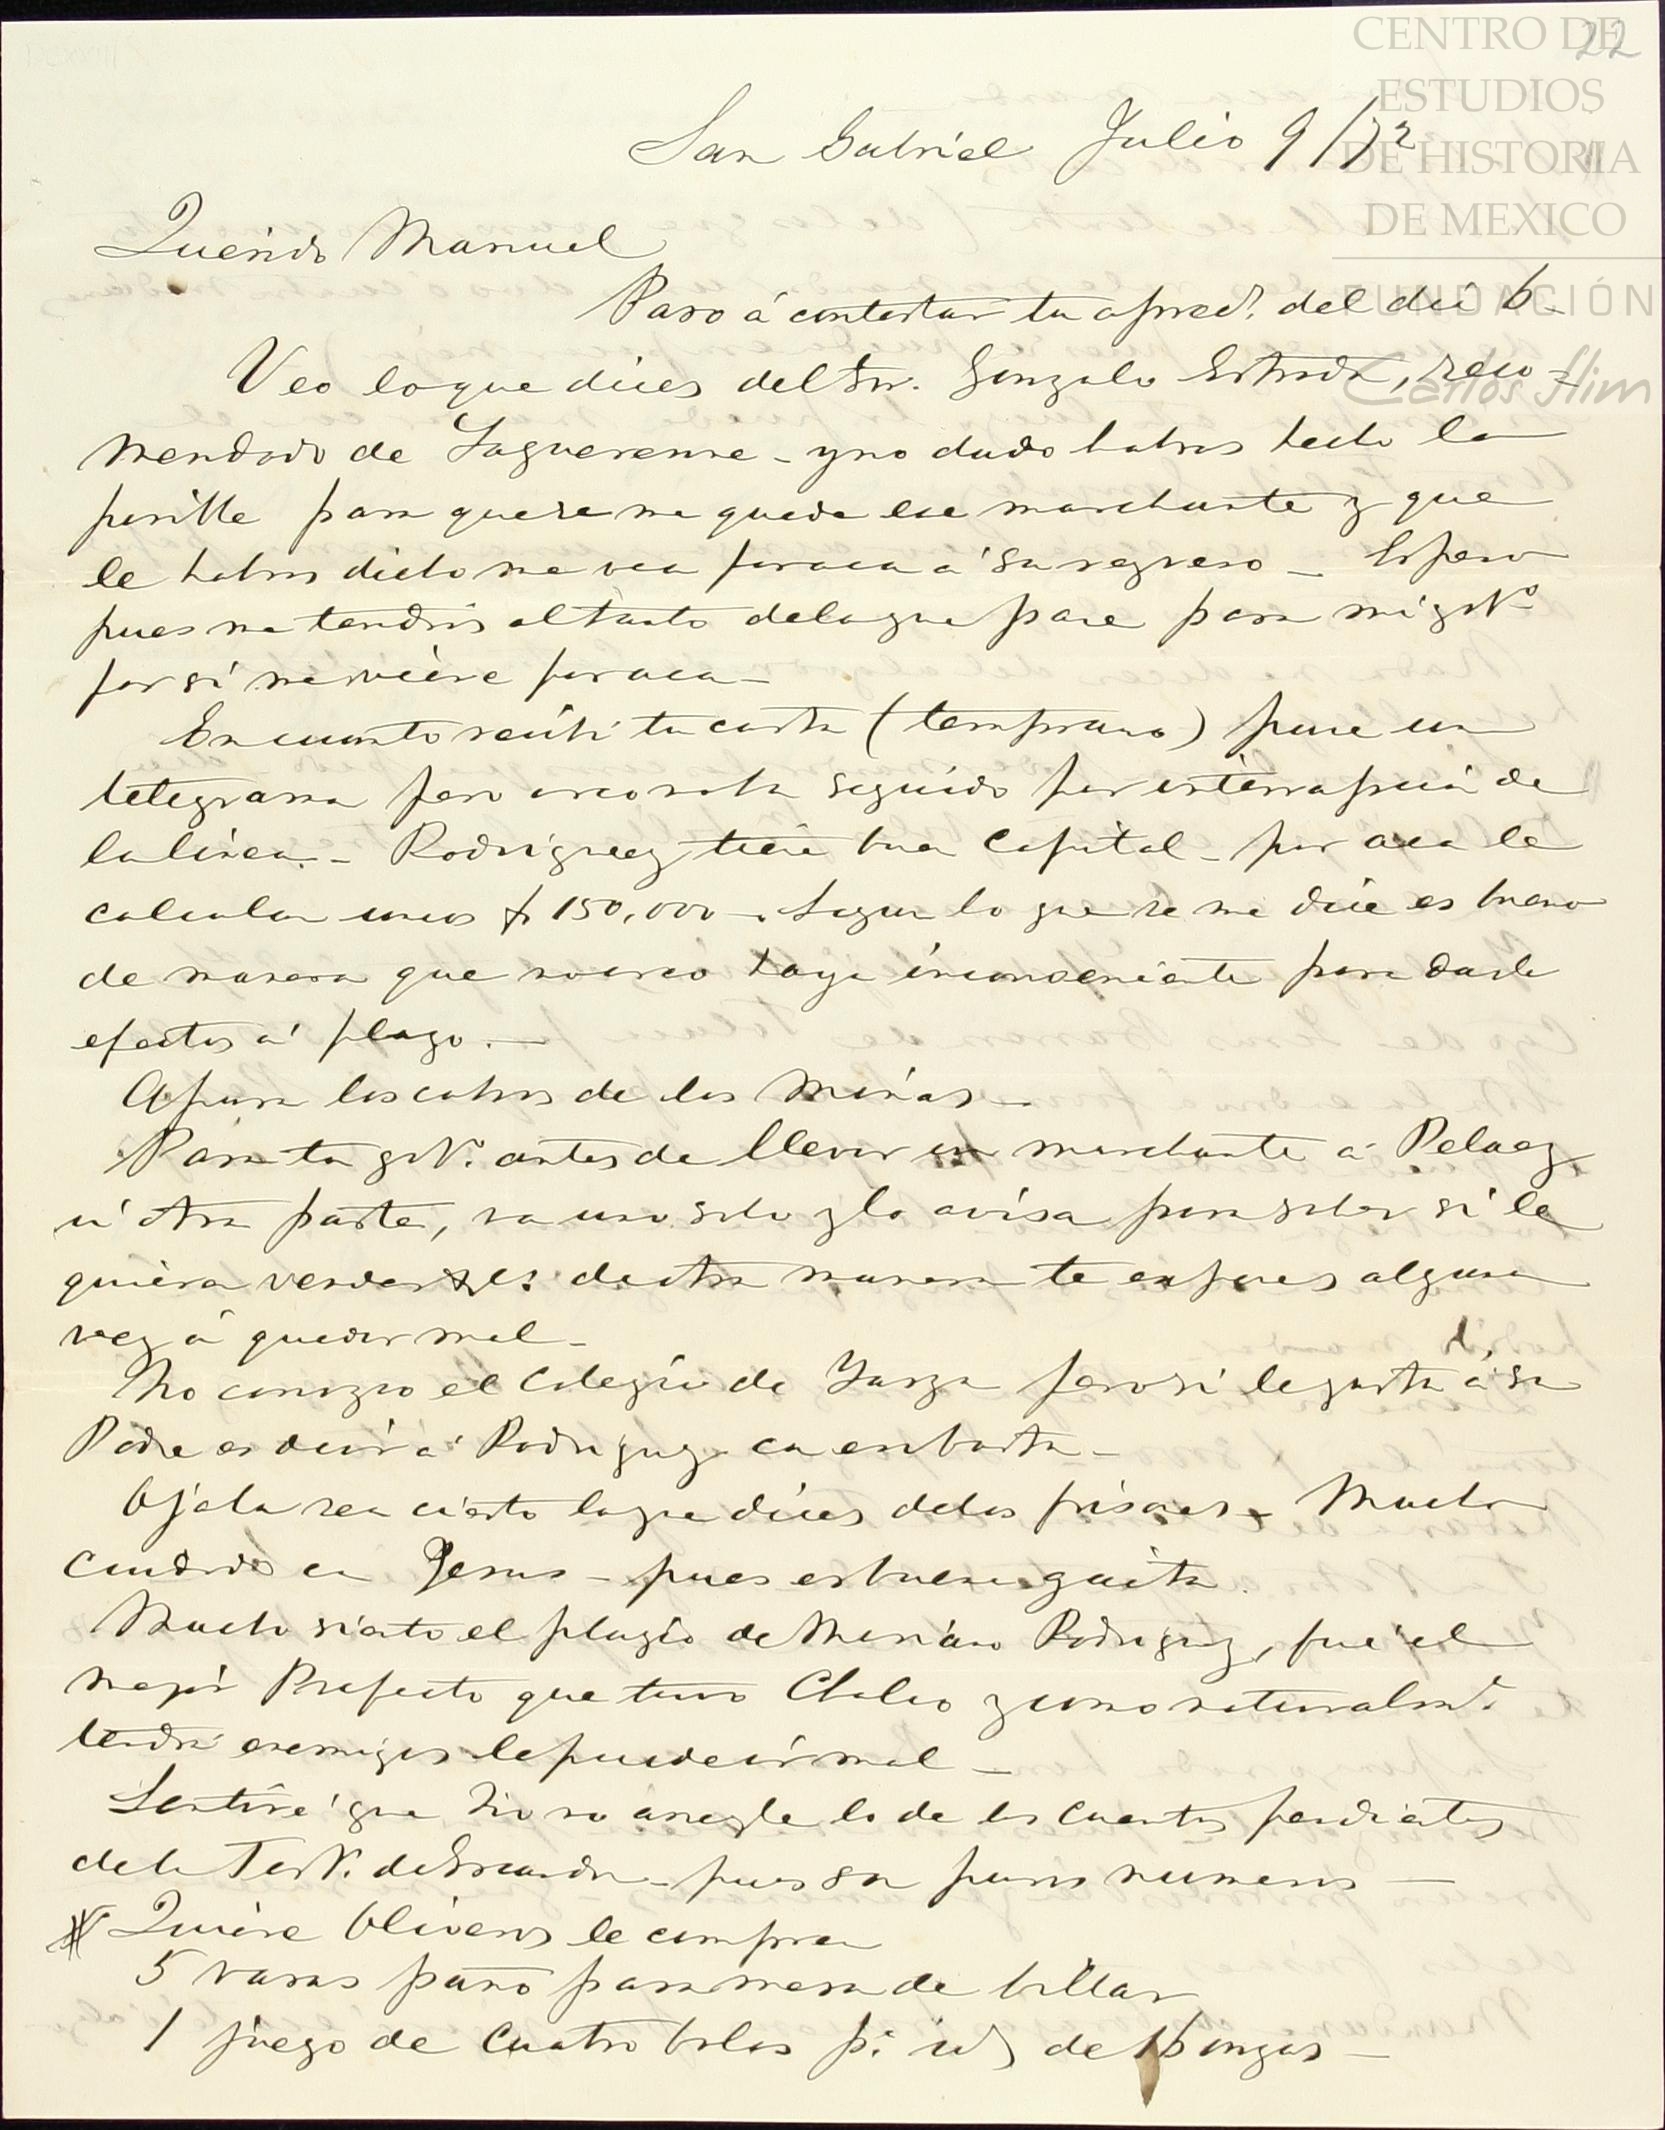 CENTRO DE
ESTUDIOS
DE HISTORIA
DE MEXICO
FUNDACIÓN
Carlos Slim
22
San Gabriel Julio 9/72
Querido Manuel
Paso á contestar tu apred. del dia 6-
Veo lo que dices del Sr. Gonzalo Estrada, reco-
mendado de Laguerenne - y no dudo habras hecho la
para que se me quede ese marchante y que
le habras dicho me vea por aca á su regreso - Espero
pues me tendras al tanto de lo que pase para mi gob.o
por si me viene por aca -
En cuanto recibi tu carta (temprano) puse un
telegrama pero creo no ha seguido por interrupcion de
la linea. - Rodriguez tiene buen Capital - por aca le
calculan unos $150,000 -. Segun lo que se me dice es bueno
de manera que no creo haya inconveniente para darle
efectos á plazo. -
Apura los cobros de las Minas -
Para tu gob.o antes de llevar un marchante á Pelaez
ú otra parte, va uno solo y lo avisa para saber si le
quieren vender de otra manera te espones alguna
vez á quedar mal -
No conozco el Colegio de Yarza pero si le gusta á su
Padre es decir á Rodriguez con eso basta -
Ojala sea cierto lo que dices de los frisones - Mucho
cuidado en Jesus - pues es buena
Mucho siento el plagio de Mariano Rodriguez, fué el
mejor Prefecto que tuvo Chalco y como naturalm.te
tendra enemigos le puede ir mal -
Sentiré que no arregle lo de las cuentas pendientes
de la Test. de Escandon - pues son puros numeros -
# Quiere Oliveros le compren
5 varas paño para mesa de billar
1 juego de cuatro bolas p.a id de 16 onzas -